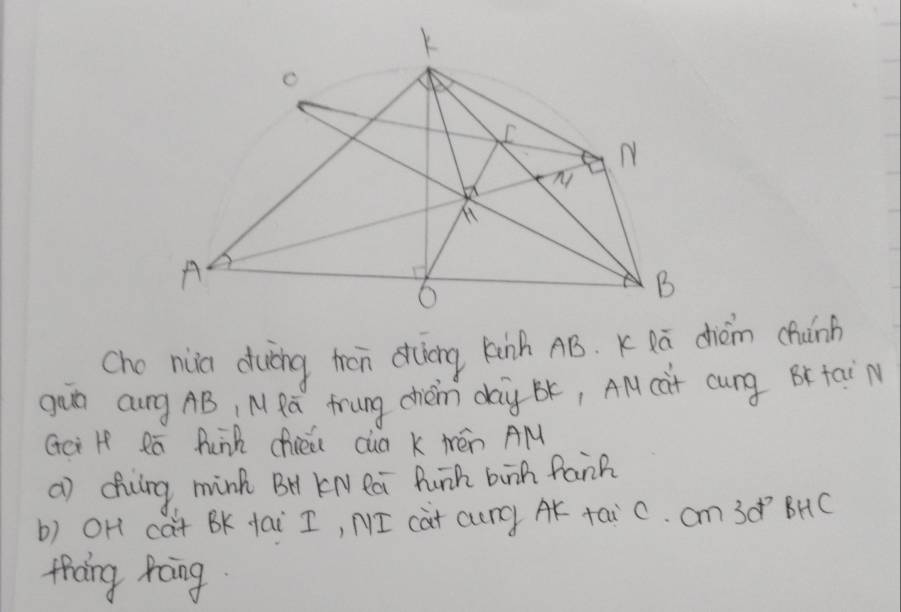 K
C
I
N
M
H
A
O
B
Cho nửa đường tròn đường kính AB. K là điểm chính
giữa cung AB, M là trung điểm dây BK, AM cắt cung BK tại N
Gọi H là hình chiếu của K trên AM
a) chứng minh BHKN là hình bình hành
b) OH cắt BK tại I, NI cắt cung AK tại C. cm 3đ' BHC
thẳng hàng.